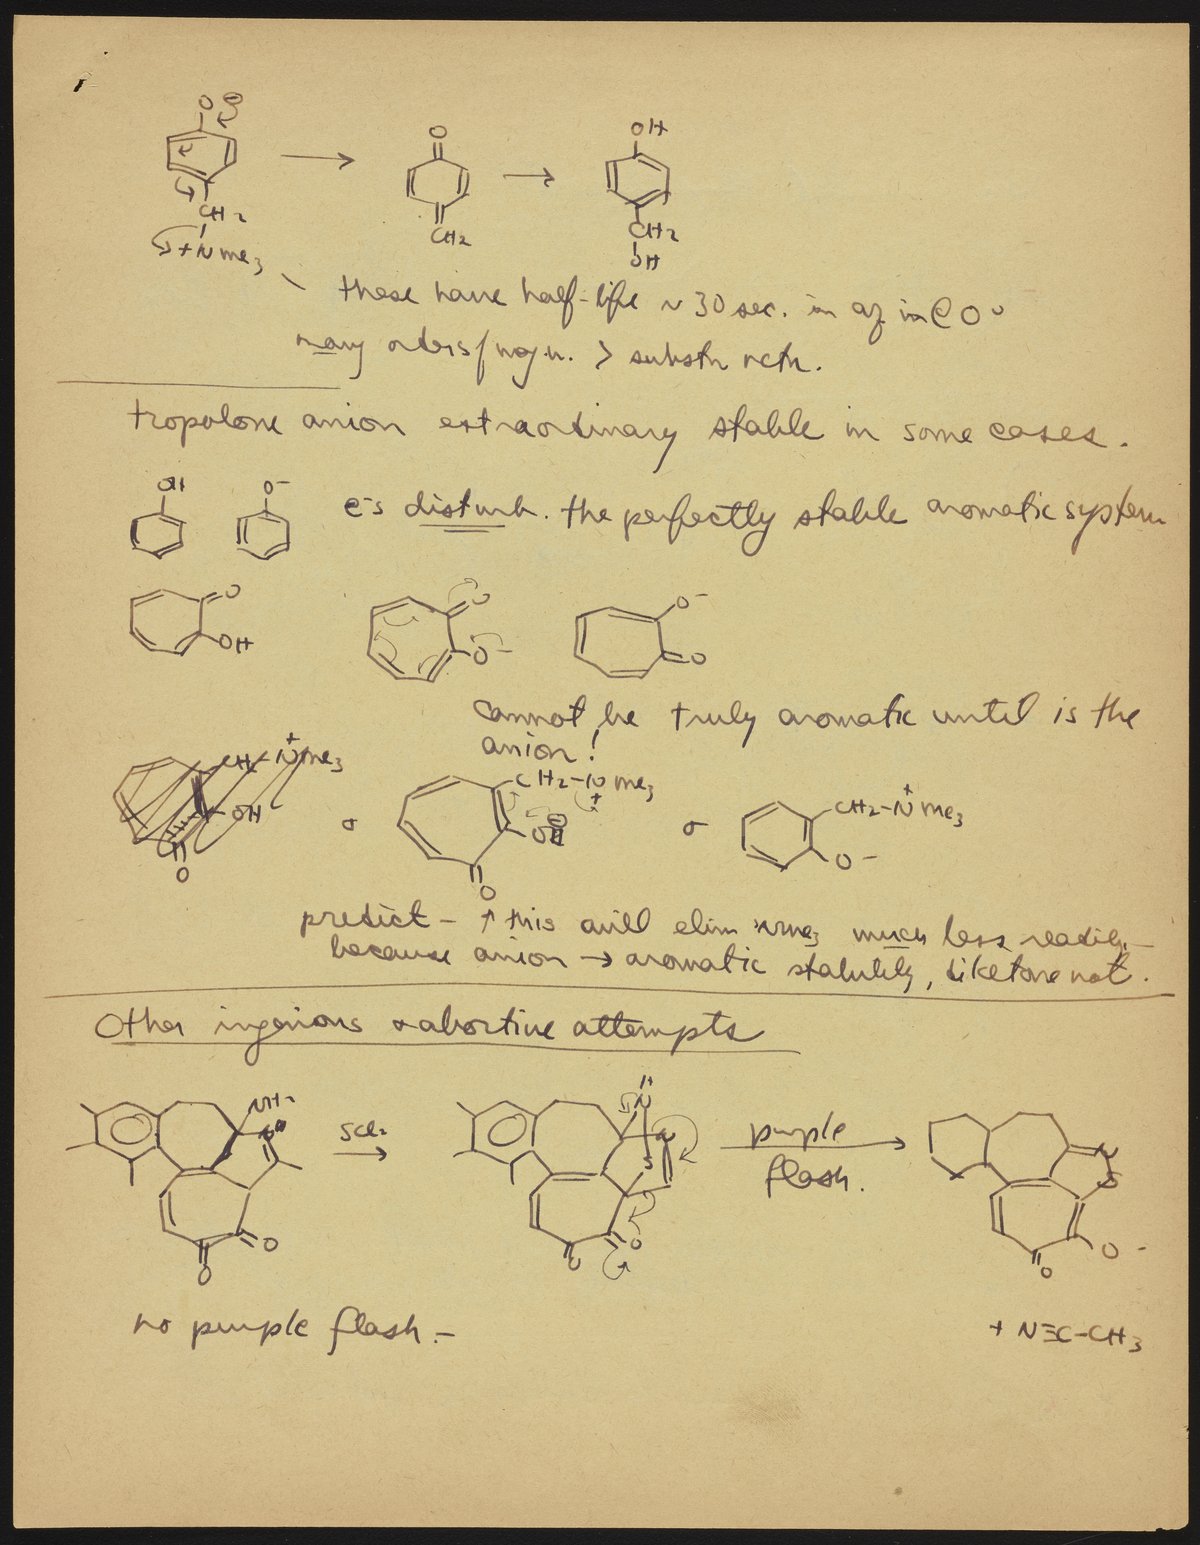 O ⊖
CH2
+NMe3
O
CH2
OH
CH2
OH
these have half-life ~ 30 sec. in aq in @ 0°
many orders/magn. > substn rctn.
tropolone anion extraordinary stable in some cases.
OH
O-
e-s disturb. the perfectly stable aromatic system
O
OH
O
O-
O-
O
cannot be truly aromatic until is the
anion!
CH2-N+Me3
OH
O
or
CH2-NMe3
+
O⊖
O
or
CH2-N+Me3
O-
predict - ↑ this will elim NMe3 much less readily -
because anion → aromatic stability, diketone not.
Other ingenious & abortive attempts
NH2
N
O
O
SCl2
H
N
N
S
O
O
purple
flash.
N
S
O-
O
no purple flash. -
+ N≡C-CH3